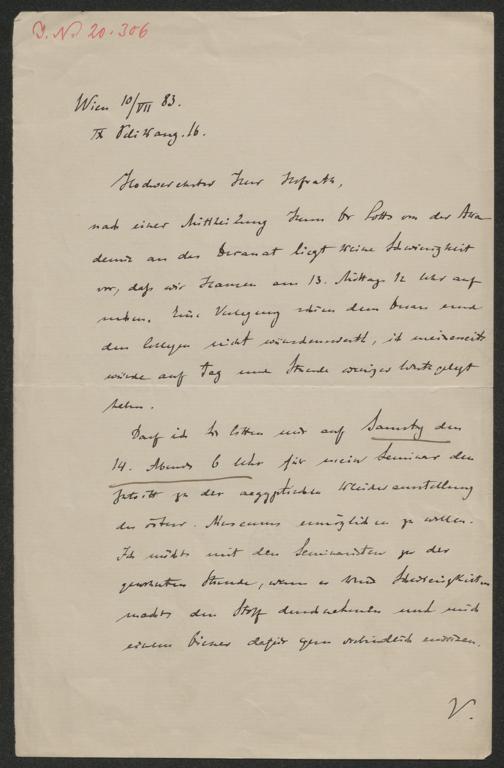 J. N. 20.306
Wien 10/VII 83.
IX 16.
Hochverehrter Herr Hofrath,
nach einer Mittheilung Herrn Dr Lotts von der Aka
demie an das Decanat liegt keine Schwierigkeit
vor, daß wir Hansen am 13. Mittags 12 Uhr auf
nehmen. Eine Verlegung schien dem Decan und
den Collegen nicht wünschenswerth, ich meinerseits
würde auf Tag und Stunde weniger Werth gelegt
haben.
Darf ich Sie bitten mir auf Samstag den
14. Abends 6 Uhr für mein Seminar den
Zutritt zu der aegyptischen Kleiderausstellung
des österr. Museums ermöglichen zu wollen.
Ich möchte mit den Seminaristen zu der
gewohnten Stunde, wenn es keine Schwierigkeiten
macht, den Stoff durchnehmen und mich
einem Diener dafür gern erkenntlich erweisen.
V.